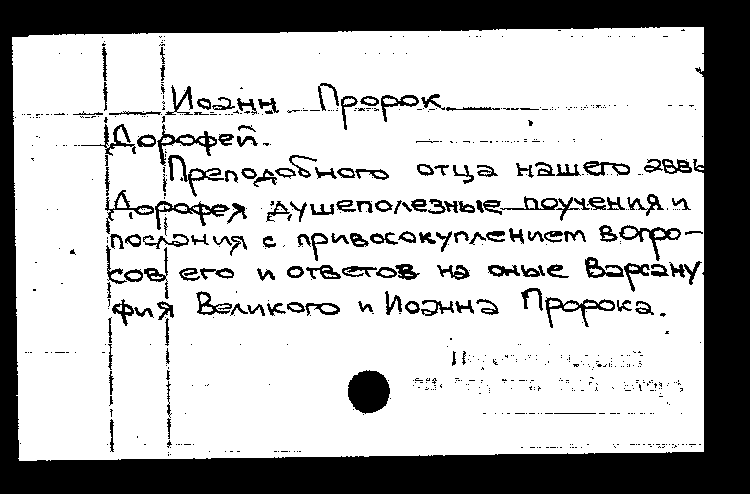 Иоанн Пророк
Дорофей.
Преподобного отца нашего аввы
Дорофея душеполезные поучения и
послания с привосокуплением вопро-
сов его и ответов на оные Варсану
фия Великого и Иоанна Пророка.